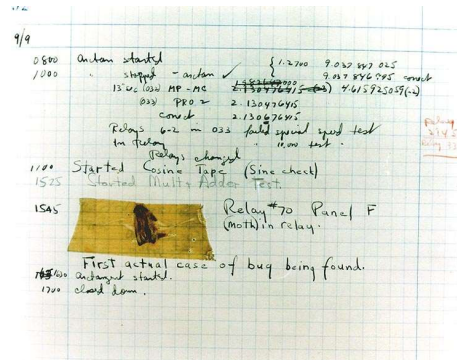 9/9
0800 Antan started
1000 " stopped - antan ✓ { 1.2700 9.037 847 025
9.037 846 995 correct
13"uc (032) MP-MC 2.130476415 (-3) 4.615925059(-2)
(033) PRO 2 2.130476415
correct 2.130676415
Relays 6-2 in 033 failed special speed test
in relay " 10.000 test.
Relays changed
1100 Started Cosine Tape (Sine check)
1525 Started Mult+Adder Test.
1545 Relay #70 Panel F
(moth) in relay.
First actual case of bug being found.
1630 antangent started.
1700 closed down.